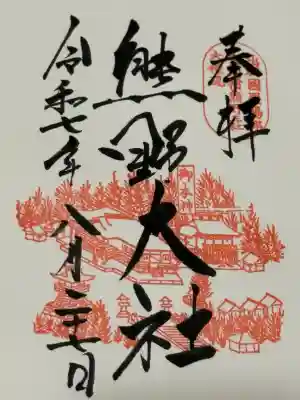 奉拝
熊野大社
令和七年八月二十七日